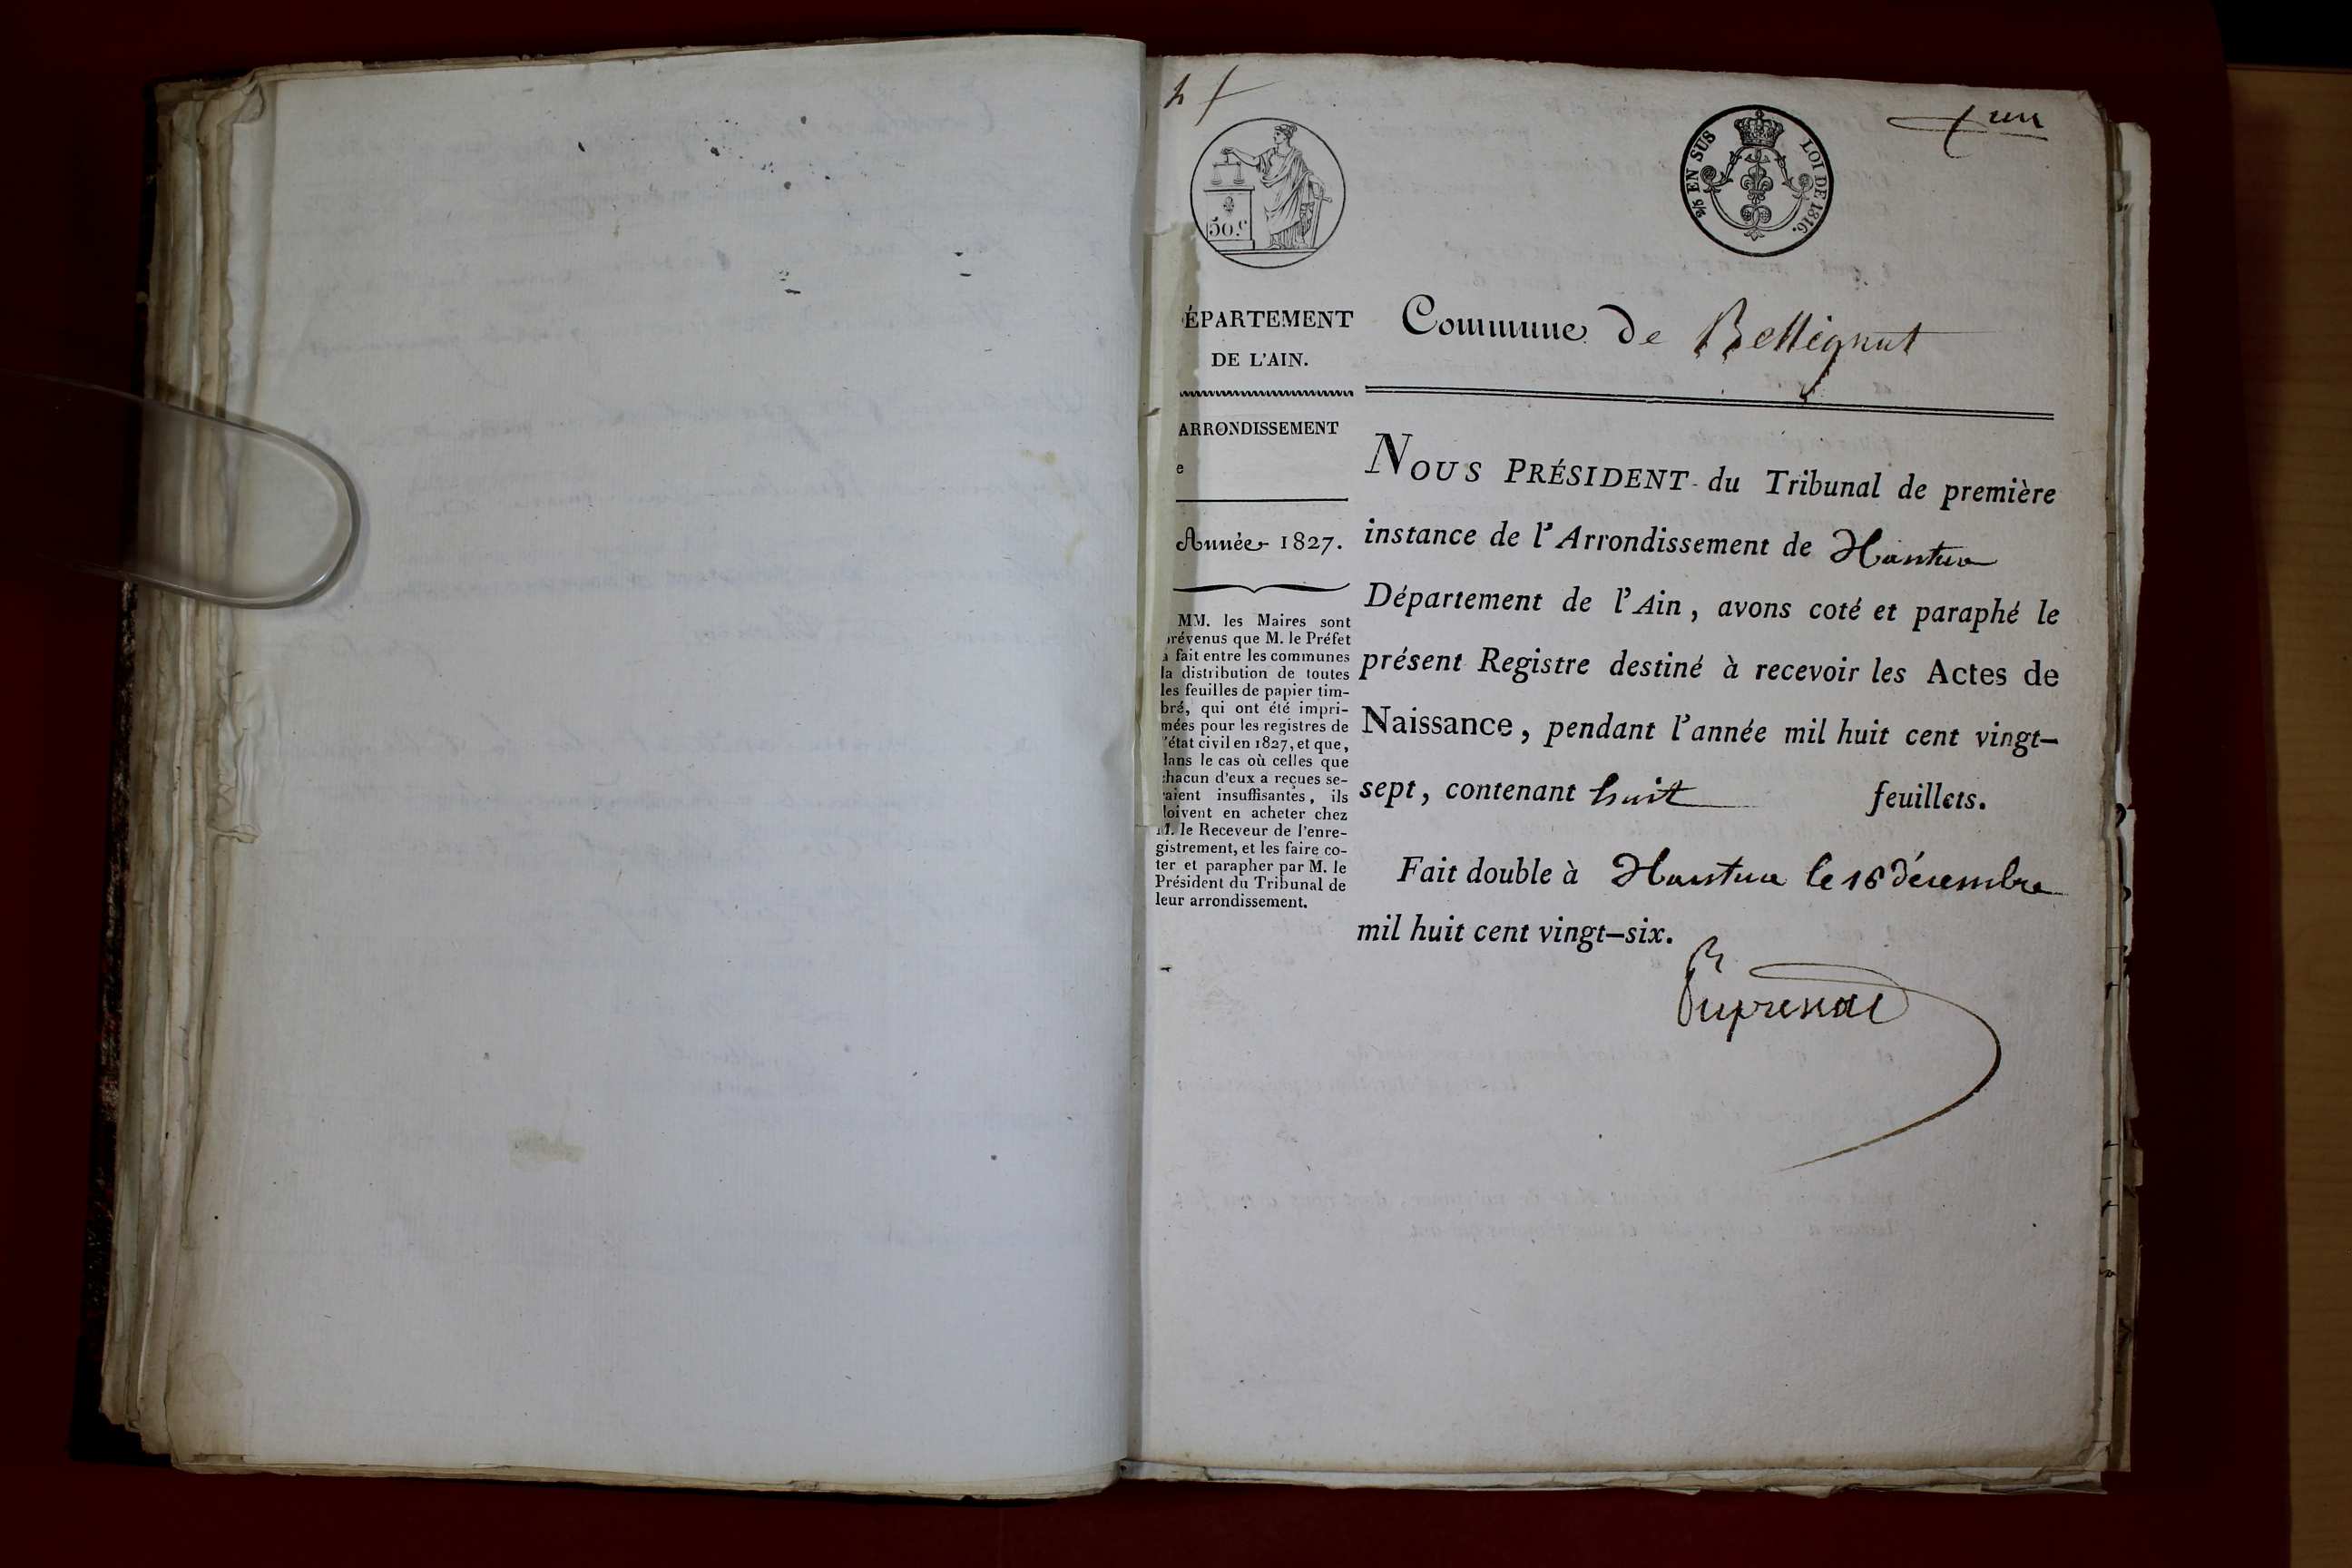 un
50 c.
2/5 EN SUS LOI DE 1816.
ÉPARTEMENT
DE L'AIN.
ARRONDISSEMENT
e
Année 1827.
MM. les Maires sont
révenus que M. le Préfet
a fait entre les communes
la distribution de toutes
les feuilles de papier tim-
bré, qui ont été impri-
mées pour les registres de
l'état civil en 1827, et que,
dans le cas où celles que
chacun d'eux a reçues se-
raient insuffisantes, ils
doivent en acheter chez
M. le Receveur de l'enre-
gistrement, et les faire co-
ter et parapher par M. le
Président du Tribunal de
leur arrondissement.
Commune de Bellignat
NOUS PRÉSIDENT du Tribunal de première
instance de l'Arrondissement de Nantua
Département de l'Ain, avons coté et paraphé le
présent Registre destiné à recevoir les Actes de
Naissance, pendant l'année mil huit cent vingt-
sept, contenant huit feuillets.
Fait double à Nantua le 16 décembre
mil huit cent vingt-six.